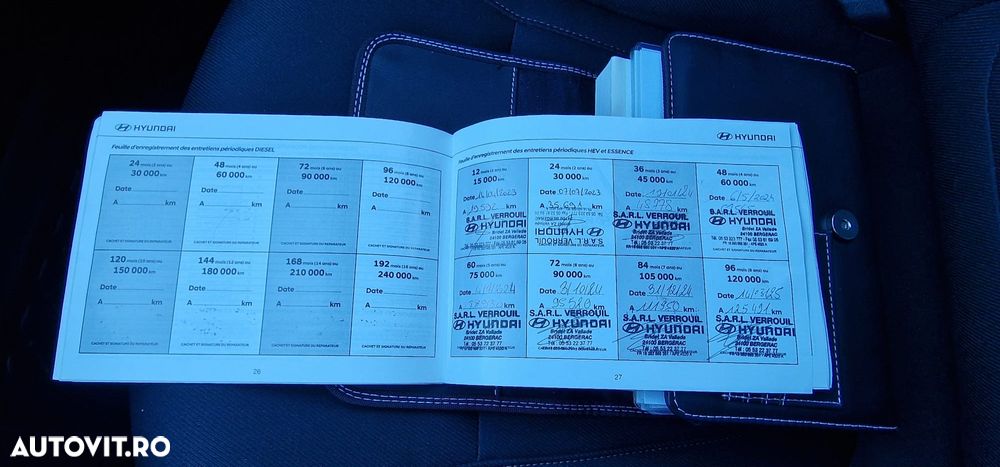 HYUNDAI
Feuille d'enregistrement des entretiens périodiques DIESEL
24 mois (2 ans) ou
30 000 km
Date
A km
CACHET ET SIGNATURE DU REPARATEUR
48 mois (4 ans) ou
60 000 km
Date
A km
CACHET ET SIGNATURE DU REPARATEUR
72 mois (6 ans) ou
90 000 km
Date
A km
CACHET ET SIGNATURE DU REPARATEUR
96 mois (8 ans) ou
120 000 km
Date
A km
CACHET ET SIGNATURE DU REPARATEUR
120 mois (10 ans) ou
150 000 km
Date
A km
CACHET ET SIGNATURE DU REPARATEUR
144 mois (12 ans) ou
180 000 km
Date
A km
CACHET ET SIGNATURE DU REPARATEUR
168 mois (14 ans) ou
210 000 km
Date
A km
CACHET ET SIGNATURE DU REPARATEUR
192 mois (16 ans) ou
240 000 km
Date
A km
CACHET ET SIGNATURE DU REPARATEUR
26
HYUNDAI
Feuille d'enregistrement des entretiens périodiques HEV et ESSENCE
12 mois (1 an) ou
15 000 km
Date
A 19592 km
S.A.R.L. VERROUIL
HYUNDAI
Bridet ZA Vallade
24100 BERGERAC
24 mois (2 ans) ou
30 000 km
Date 07/07/2023
A 35691 km
S.A.R.L. VERROUIL
HYUNDAI
36 mois (3 ans) ou
45 000 km
Date
A km
S.A.R.L. VERROUIL
HYUNDAI
Bridet ZA Vallade
24100 BERGERAC
Tél : 05 53 22 37 77
48 mois (4 ans) ou
60 000 km
Date 6/5/2024
A km
S.A.R.L. VERROUIL
HYUNDAI
Bridet ZA Vallade
24100 BERGERAC
60 mois (5 ans) ou
75 000 km
Date
A km
S.A.R.L. VERROUIL
HYUNDAI
Bridet ZA Vallade
24100 BERGERAC
Tél : 05 53 22 37 77
72 mois (6 ans) ou
90 000 km
Date
A 95520 km
S.A.R.L. VERROUIL
HYUNDAI
Bridet ZA Vallade
24100 BERGERAC
Tél : 05 53 22 37 77
84 mois (7 ans) ou
105 000 km
Date
A km
S.A.R.L. VERROUIL
HYUNDAI
Bridet ZA Vallade
24100 BERGERAC
Tél : 05 53 22 37 77
96 mois (8 ans) ou
120 000 km
Date
A 125491 km
S.A.R.L. VERROUIL
HYUNDAI
Bridet ZA Vallade
24100 BERGERAC
Tél : 05 53 22 37 77
27
AUTOVIT.RO